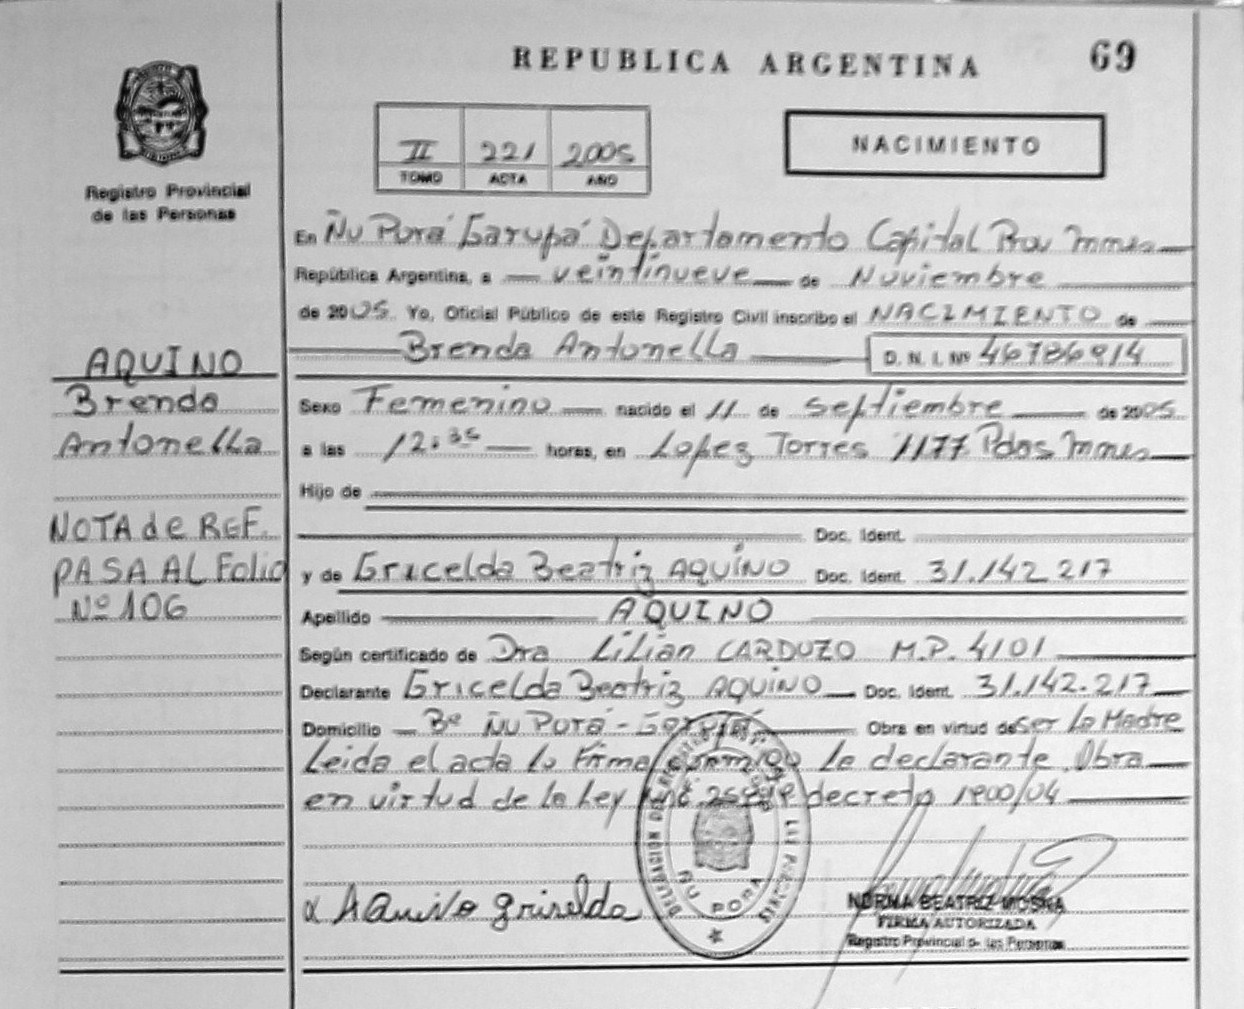 REPUBLICA ARGENTINA 69
II 221 2005
TOMO ACTA AÑO
NACIMIENTO
Registro Provincial
de las Personas
En Ñu Porá Garupá Departamento Capital Prov Mnes
República Argentina, a veintinueve de Noviembre
de 2005. Yo, Oficial Público de este Registro Civil inscribo el NACIMIENTO de
Brenda Antonella D. N. I. Nº 46786914
AQUINO
Brenda
Antonella
NOTA de REF.
PASA AL Folio
Nº 106
Sexo Femenino nacido el 11 de septiembre de 2005
a las 12:35 horas, en Lopez Torres 1177 Pdas Mnes
Hijo de
Doc. Ident.
y de Gricelda Beatriz AQUINO Doc. Ident. 31.142.217
Apellido AQUINO
Según certificado de Dra Lilian CARDUZO M.P. 4101
Declarante Gricelda Beatriz AQUINO Doc. Ident. 31.142.217
Domicilio Bº Ñu Porá - Garupá Obra en virtud de Ser La Madre
Leida el acta la Firma conmigo la declarante. Obra
en virtud de la Ley decreto 1900/04
Aquino griselda
ÑU PORA
NORMA BEATRIZ
FIRMA AUTORIZADA
Registro Provincial de las Personas